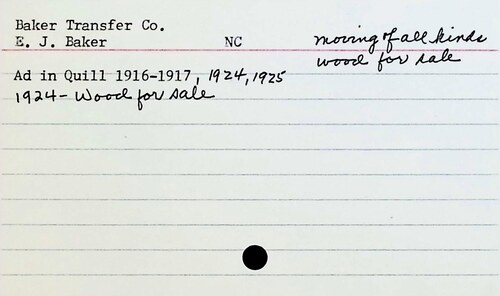 Baker Transfer Co.
E. J. Baker NC moving of all kinds
wood for sale
Ad in Quill 1916-1917, 1924, 1925
1924- Wood for sale